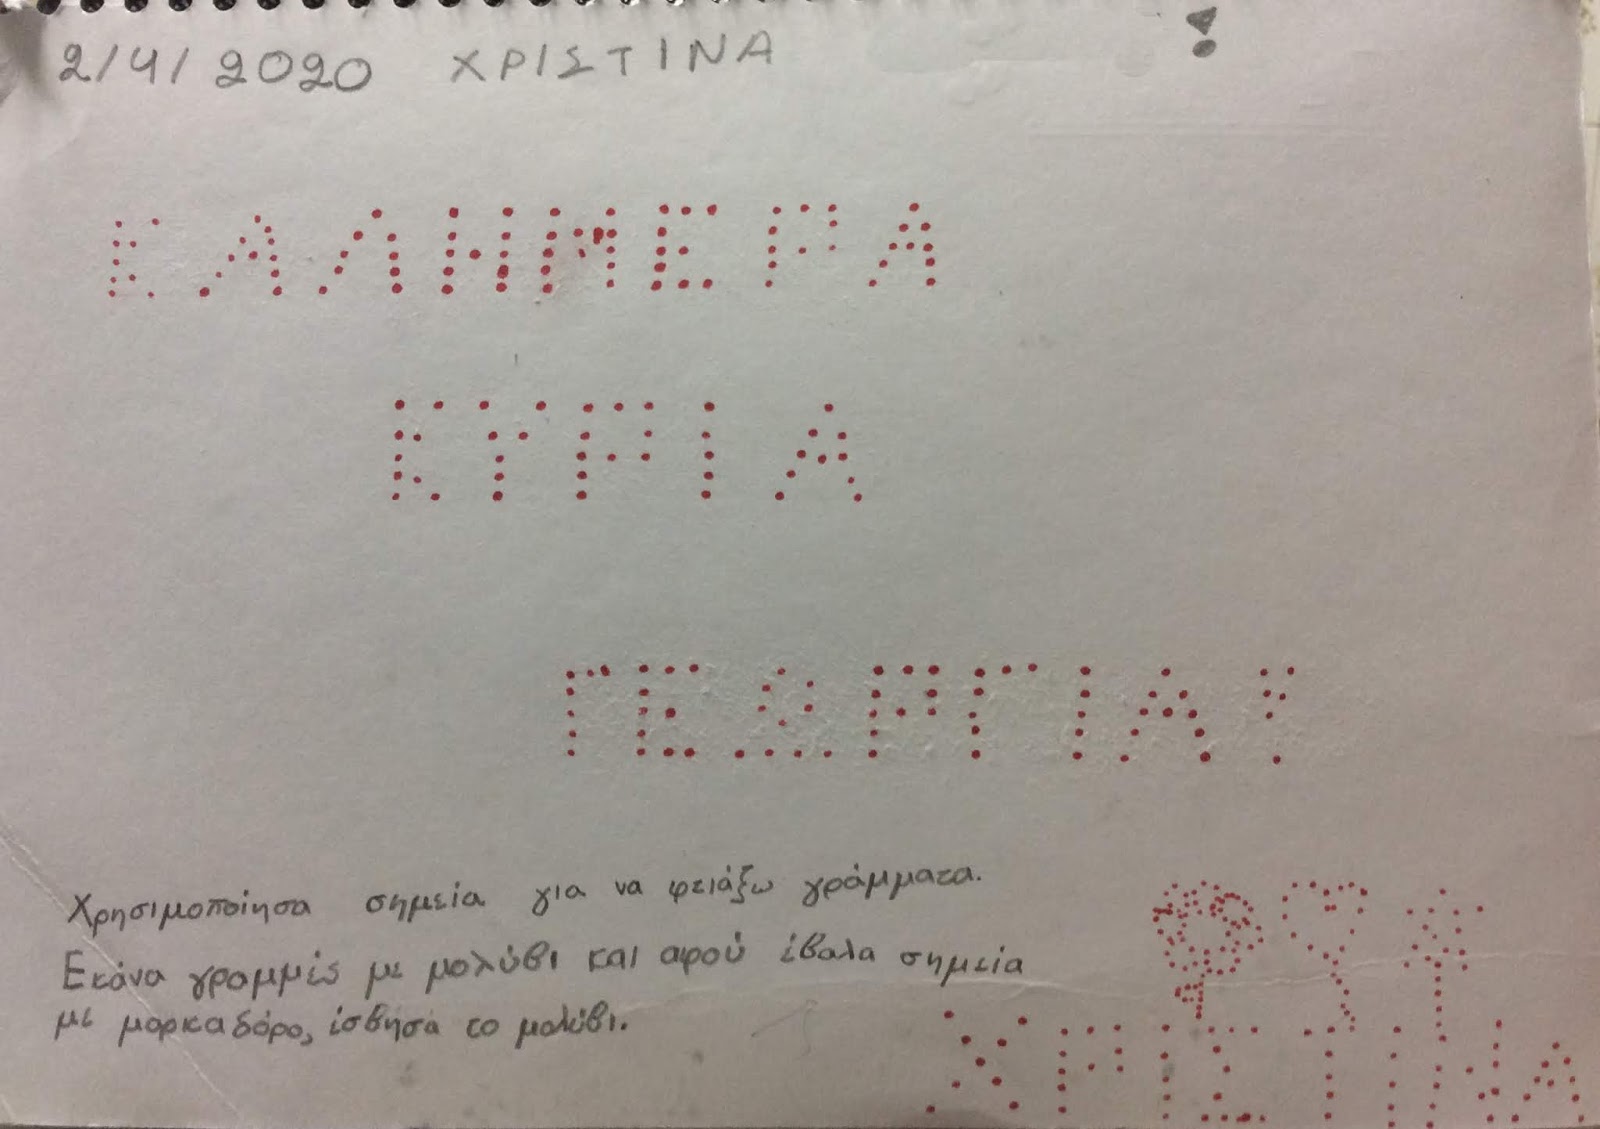 2/4/2020 ΧΡΙΣΤΙΝΑ
ΚΑΛΗΜΕΡΑ
ΚΥΡΙΑ
ΓΕΩΡΓΙΑ!
Χρησιμοποίησα σημεία για να φτιάξω γράμματα.
Εκάνα γραμμές με μολύβι και αφού έβαλα σημεία
με μαρκαδόρο, έσβησα το μολύβι.
ΧΡΙΣΤΙΝΑ